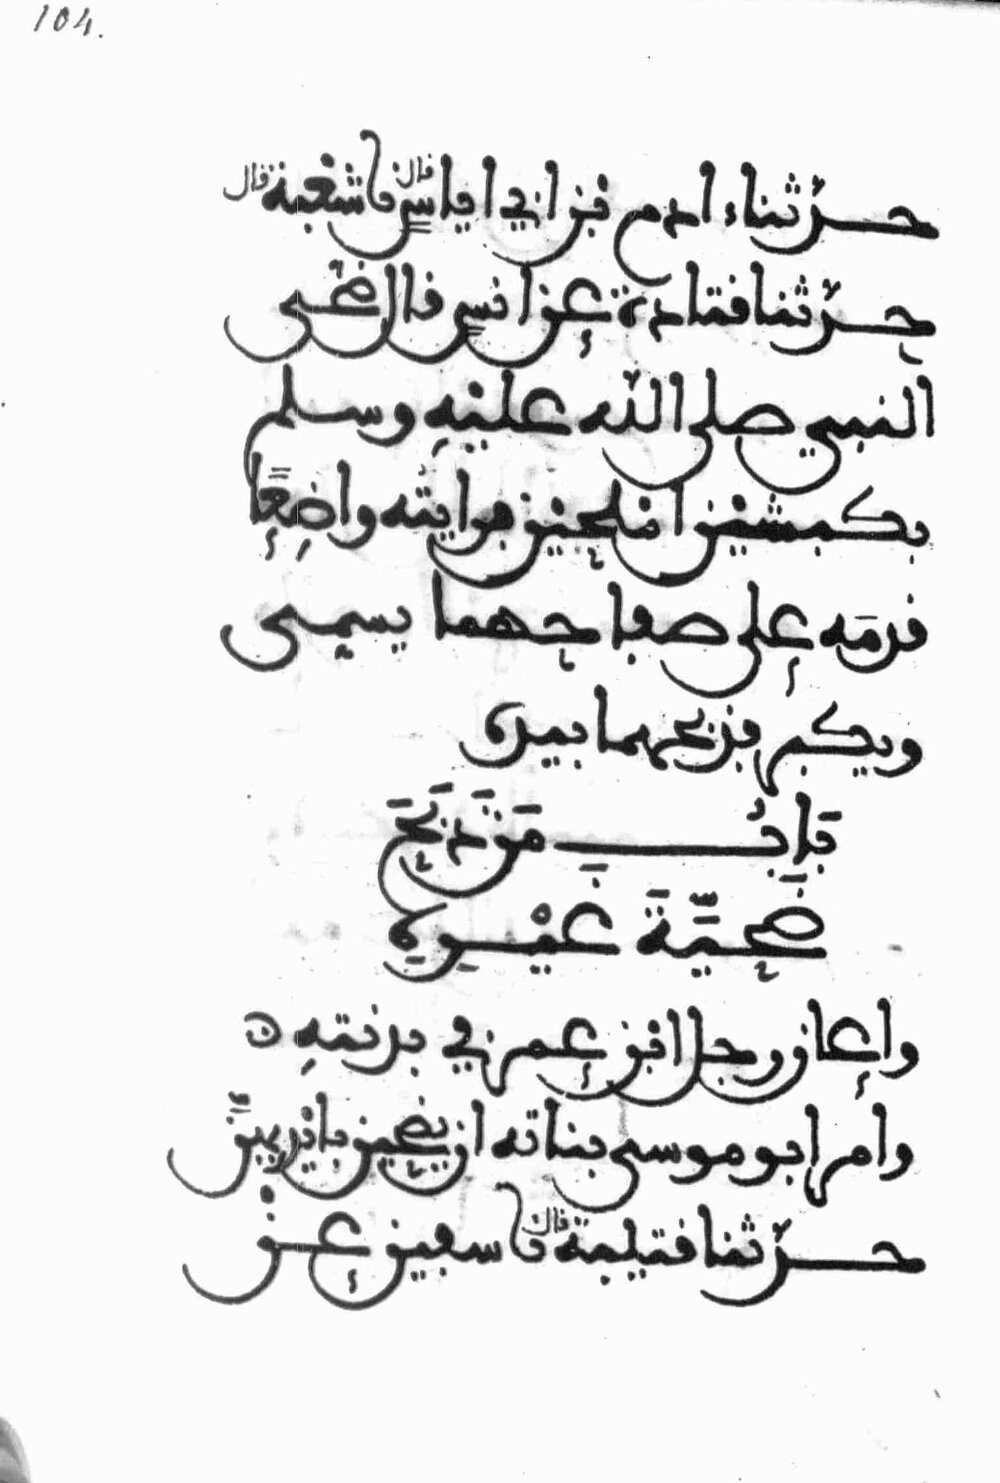 104.
حدثناء ادم بن ابي اياس قال نا شعبة قال
حدثنا قتادة عن انس قال ضحى
النبي صلى الله عليه وسلم
بكبشين املحين فرايته واضعا
قدمه على صفاحهما يسمى
ويكبر فذبحهما بيده
باب من ذبح
ضحية غيره
واعان رجل ابن عمر في بدنته ه
وامر ابو موسى بناته ان يضحين بايديهن
حدثنا قتيبة قال نا سفين عن